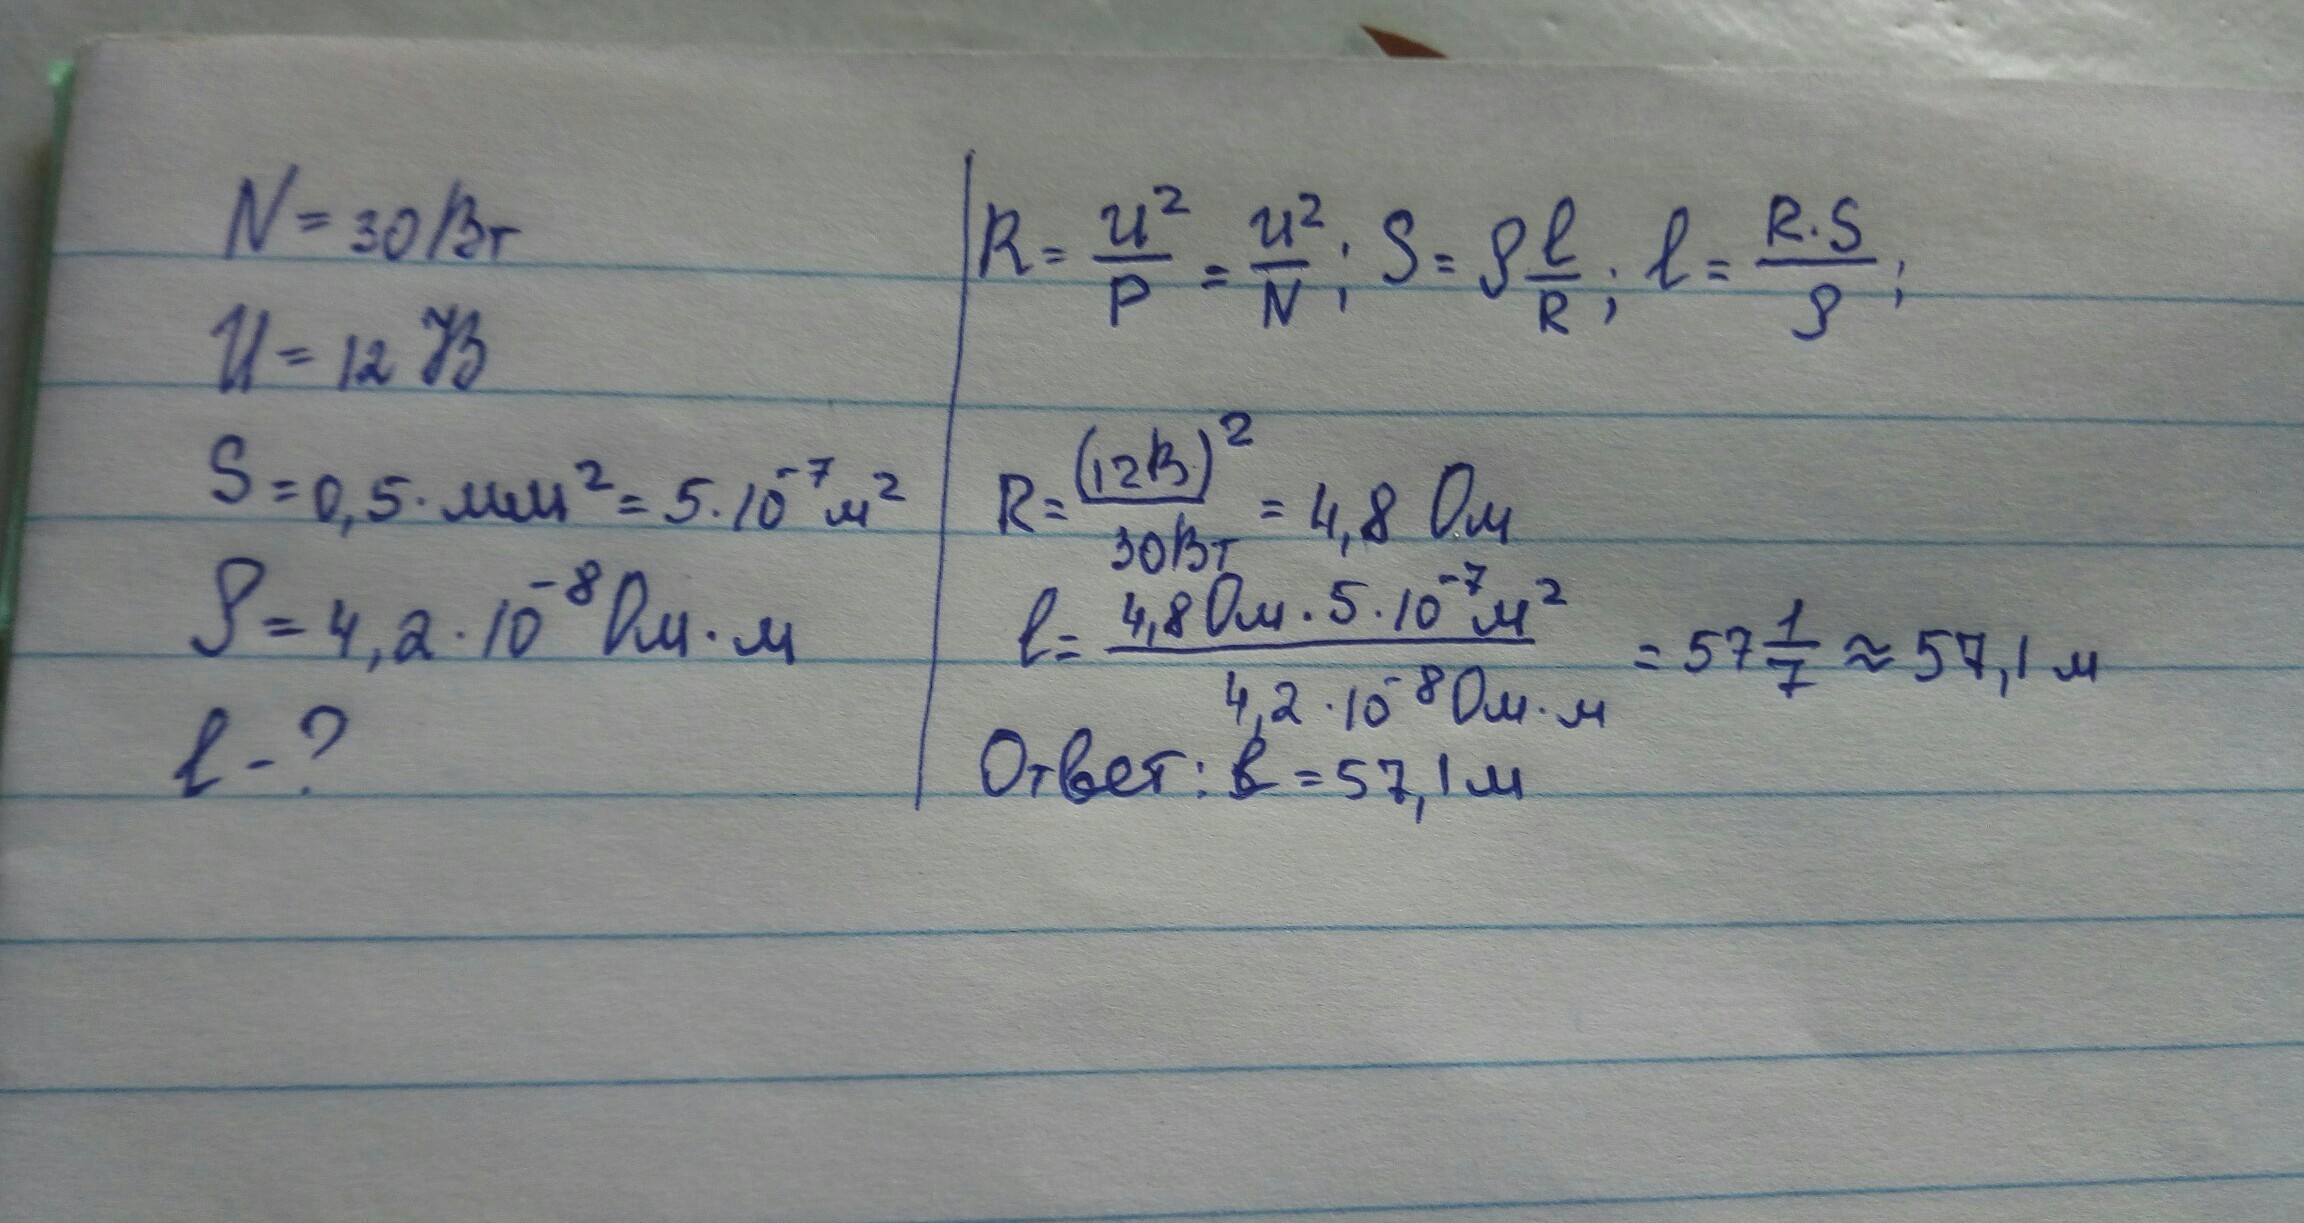 N = 30 Вт
U = 12 В
S = 0,5 · мм² = 5 · 10⁻⁷ м²
ρ = 4,2 · 10⁻⁸ Ом · м
l - ?
R = U²/P = U²/N; S = ρ l/R; l = R·S/ρ;
R = (12В)²/30Вт = 4,8 Ом
l = 4,8 Ом · 5 · 10⁻⁷ м²/4,2 · 10⁻⁸ Ом · м = 57 1/7 ≈ 57,1 м
Ответ: l = 57,1 м